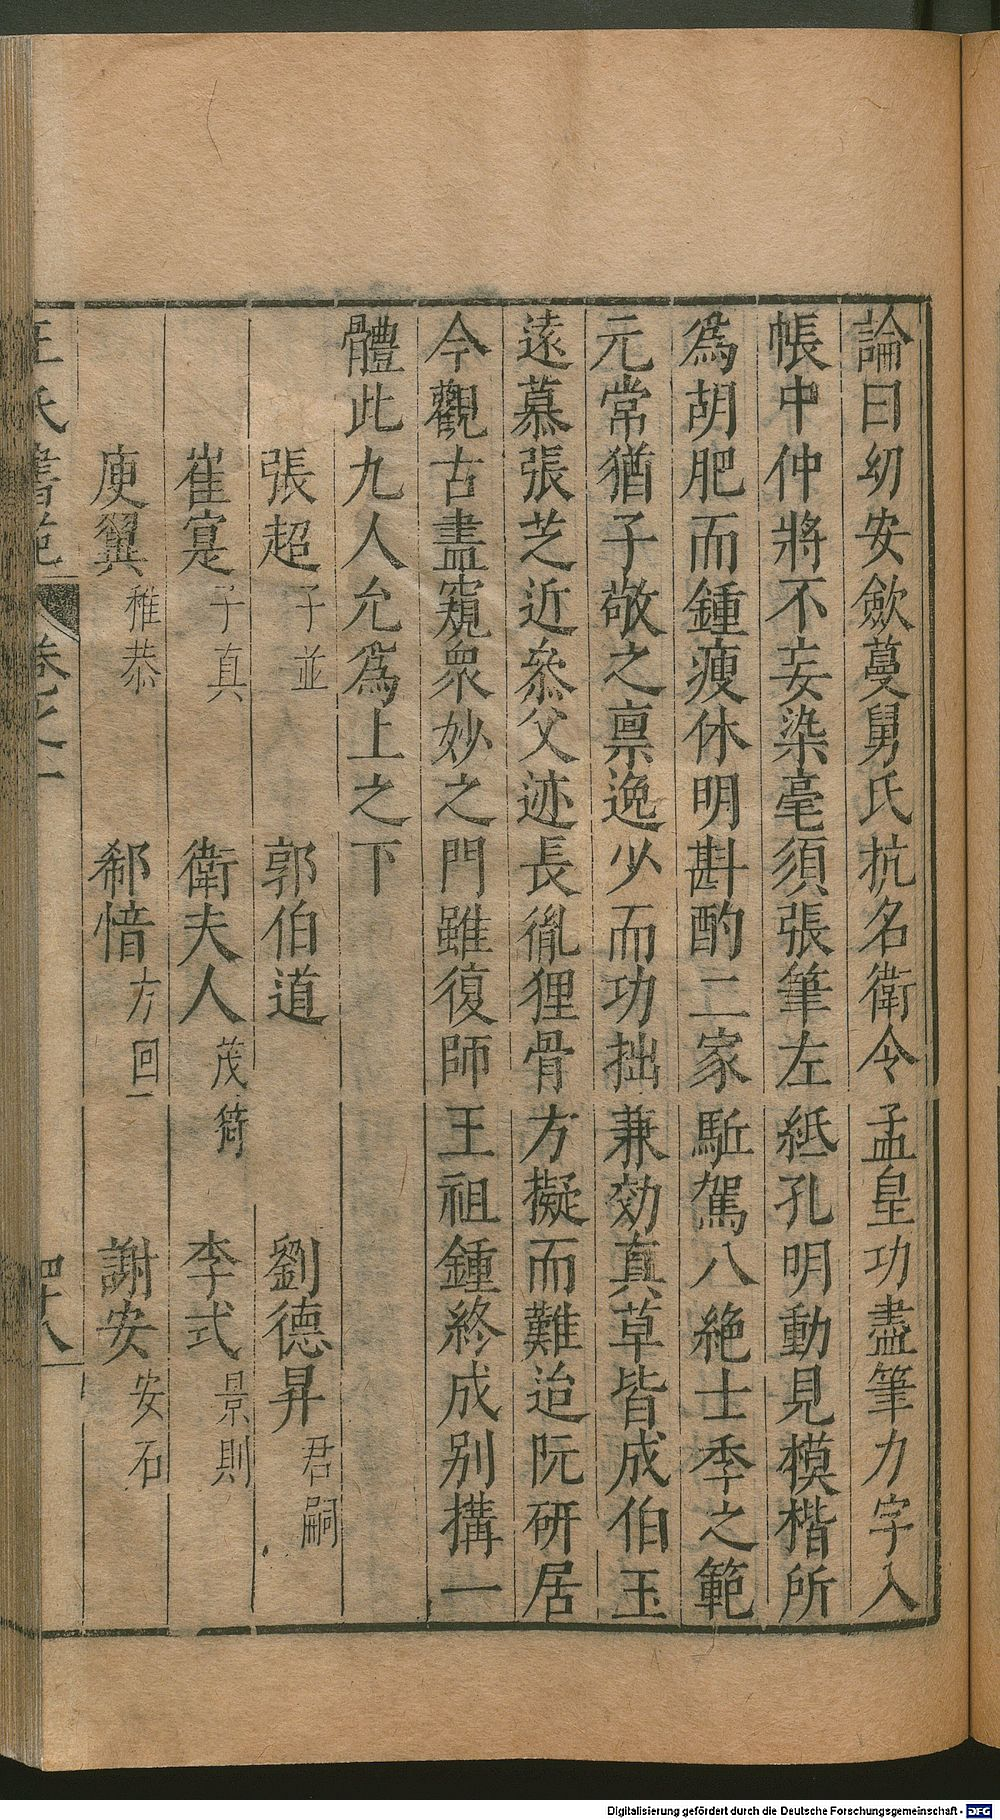 論曰幼安歛蔓舅氏抗名衛令孟皇功盡筆力字入
帳中仲將不妄染毫須張筆左紙孔明動見模楷所
爲胡肥而鍾瘦休明斟酌二家駈駕八絶士季之範
元常猶子敬之禀逸少而功拙兼効眞草皆成伯玉
遠慕張芝近叅父迹長胤狸骨方擬而難迨阮研居
今觀古盡窺衆妙之門雖復師王祖鍾終成别搆一
體此九人允爲上之下
張超子並 郭伯道 劉德昇君嗣
崔寔子真 衛夫人茂猗 李式景則
庾翼稚恭 郗愔方回 謝安安石
王氏書苑 卷之一 四十八
Digitalisierung gefördert durch die Deutsche Forschungsgemeinschaft - DFG